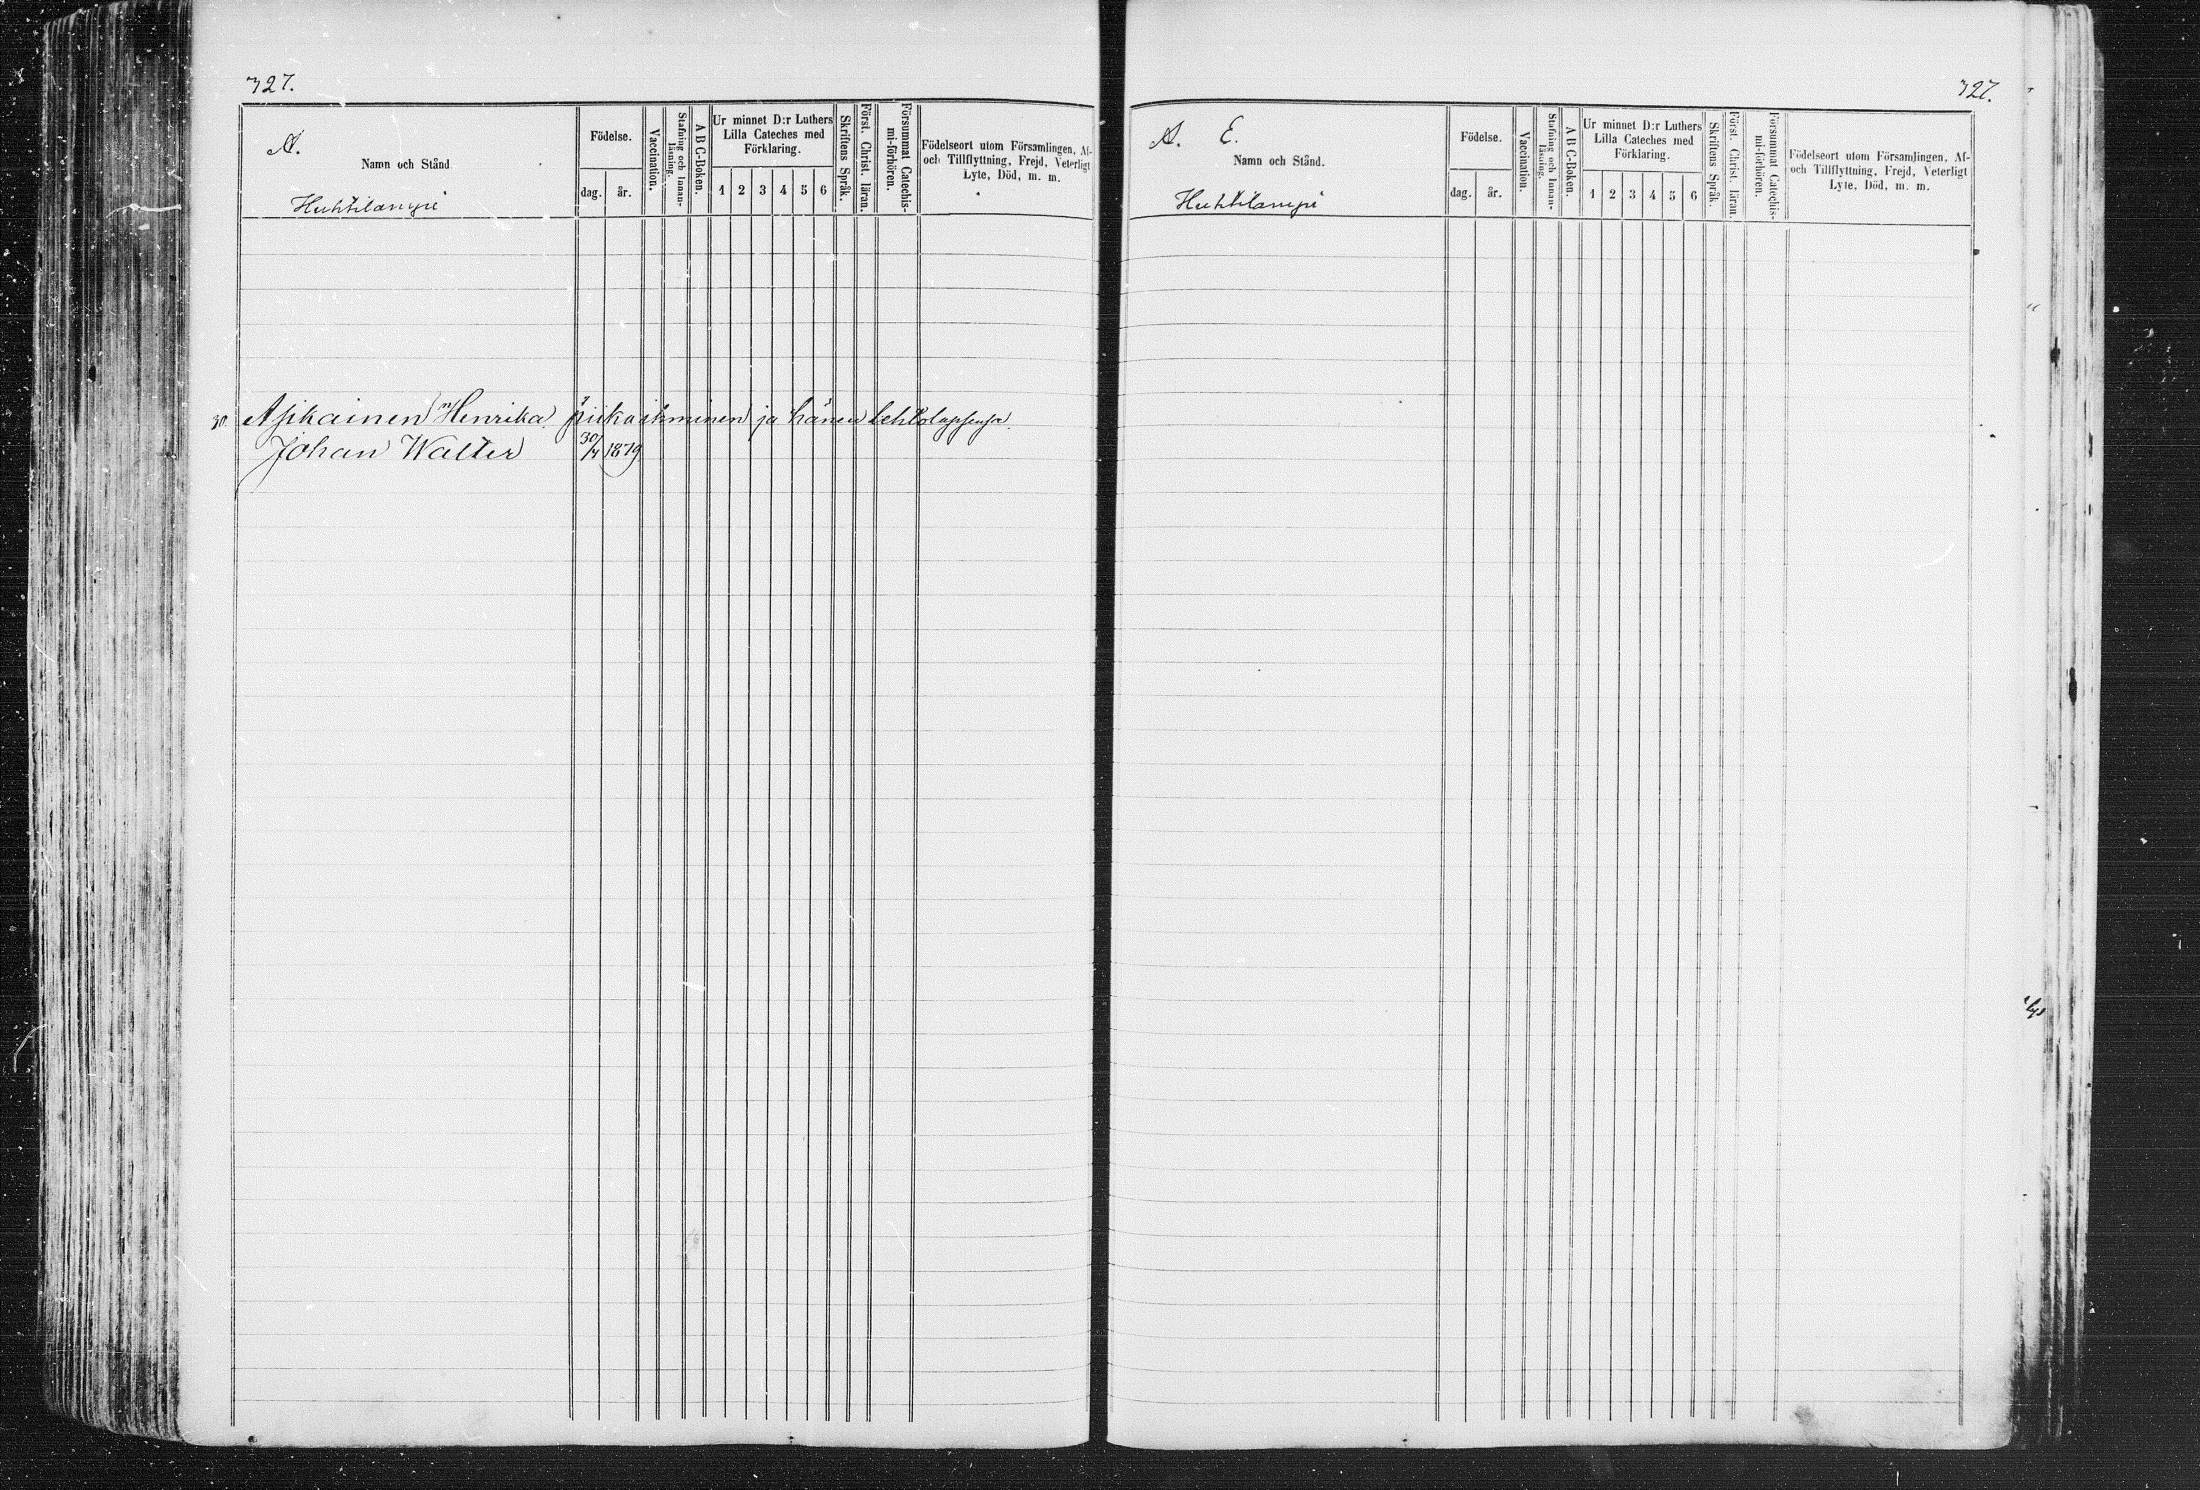 327.
A.
Namn och Stånd
Huhtilampi
Födelse.
dag. år.
Vaccination.
Stafning och Innan-läsning.
A B C-Boken.
Ur minnet D:r Luthers
Lilla Cateches med
Förklaring.
1 2 3 4 5 6
Skriftens Språk.
Först. Christ. läran.
Försummat Catechis-
mi-förhören.
Födelseort utom Församlingen, Af-
och Tillflyttning, Frejd, Veterligt
Lyte, Död, m. m.
30 Asikainen Henrika piika ihminen ja hänen lehtolapsensa
Johan Walter 30/4 1879
327.
A. E.
Namn och Stånd.
Huhtilampi
Födelse.
dag. år.
Vaccination.
Stafning och Innan-
läsning.
A B C-Boken.
Ur minnet D:r Luthers
Lilla Cateches med
Förklaring.
1 2 3 4 5 6
Skriftens Språk.
Först. Christ. läran.
Försummat Catechis-
mi-förhören.
Födelseort utom Församlingen, Af-
och Tillflyttning, Frejd, Veterligt
Lyte, Död, m. m.